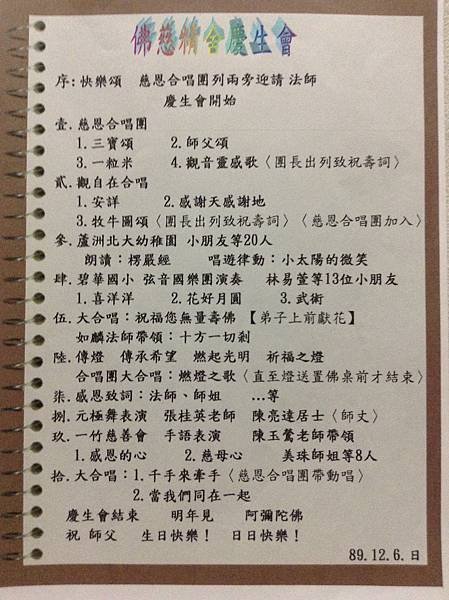 佛慈精舍慶生會
序:快樂頌 慈恩合唱團列兩旁迎請 法師
慶生會開始
壹.慈恩合唱團
1.三寶頌 2.師父頌
3.一粒米 4.觀音靈感歌〈團長出列致祝壽詞〉
貳.觀自在合唱
1.安詳 2.感謝天感謝地
3.牧牛圖頌〈團長出列致祝壽詞〉〈慈恩合唱團加入〉
參.蘆洲北大幼稚園 小朋友等20人
朗讀:楞嚴經 唱遊律動:小太陽的微笑
肆.碧華國小 弦音國樂團演奏 林易萱等13位小朋友
1.喜洋洋 2.花好月圓 3.武術
伍.大合唱:祝福您無量壽佛 【弟子上前獻花】
如麟法師帶領:十方一切剎
陸.傳燈 傳承希望 燃起光明 祈福之燈
合唱團大合唱:燃燈之歌〈直至燈送置佛桌前才結束〉
柒.感恩致詞:法師、師姐 ...等
捌.元極舞表演 張桂英老師 陳亮達居士〈師丈〉
玖.一竹慈善會 手語表演 陳玉鶯老師帶領
1.感恩的心 2.慈母心 美珠師姐等8人
拾.大合唱:1.千手來牽手〈慈恩合唱團帶動唱〉
2.當我們同在一起
慶生會結束 明年見 阿彌陀佛
祝 師父 生日快樂! 日日快樂!
89.12.6.日